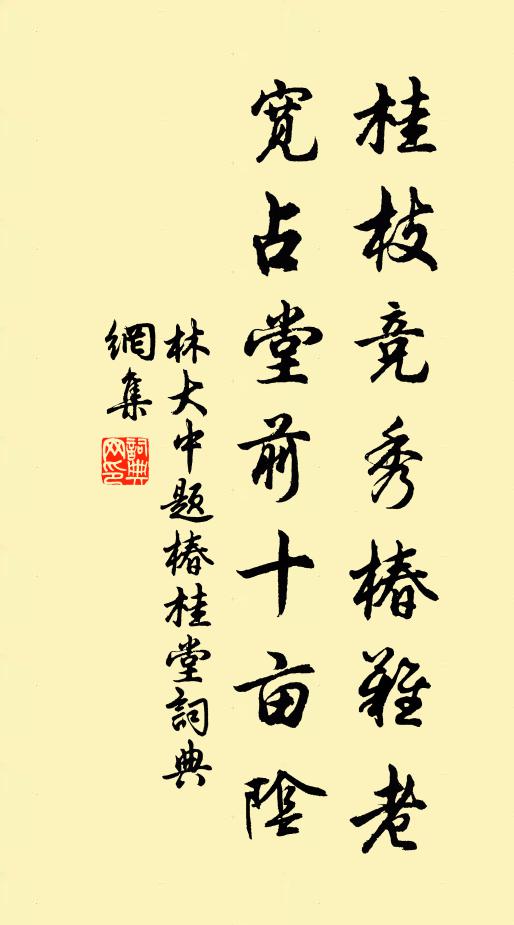 桂枝竞秀椿難老
寛占堂前十亩陰
林大中题椿桂堂詞典
網集
詞典
网印